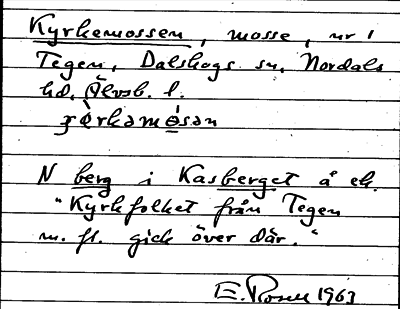 Kyrkemossen, mosse, nr 1
Tegen, Dalskogs sn, Nordals
hd, Älvsb. l.
N berg i Kasberget å ek.
"Kyrkfolket från Tegen
m. fl. gick över där."
E. Rosell 1963